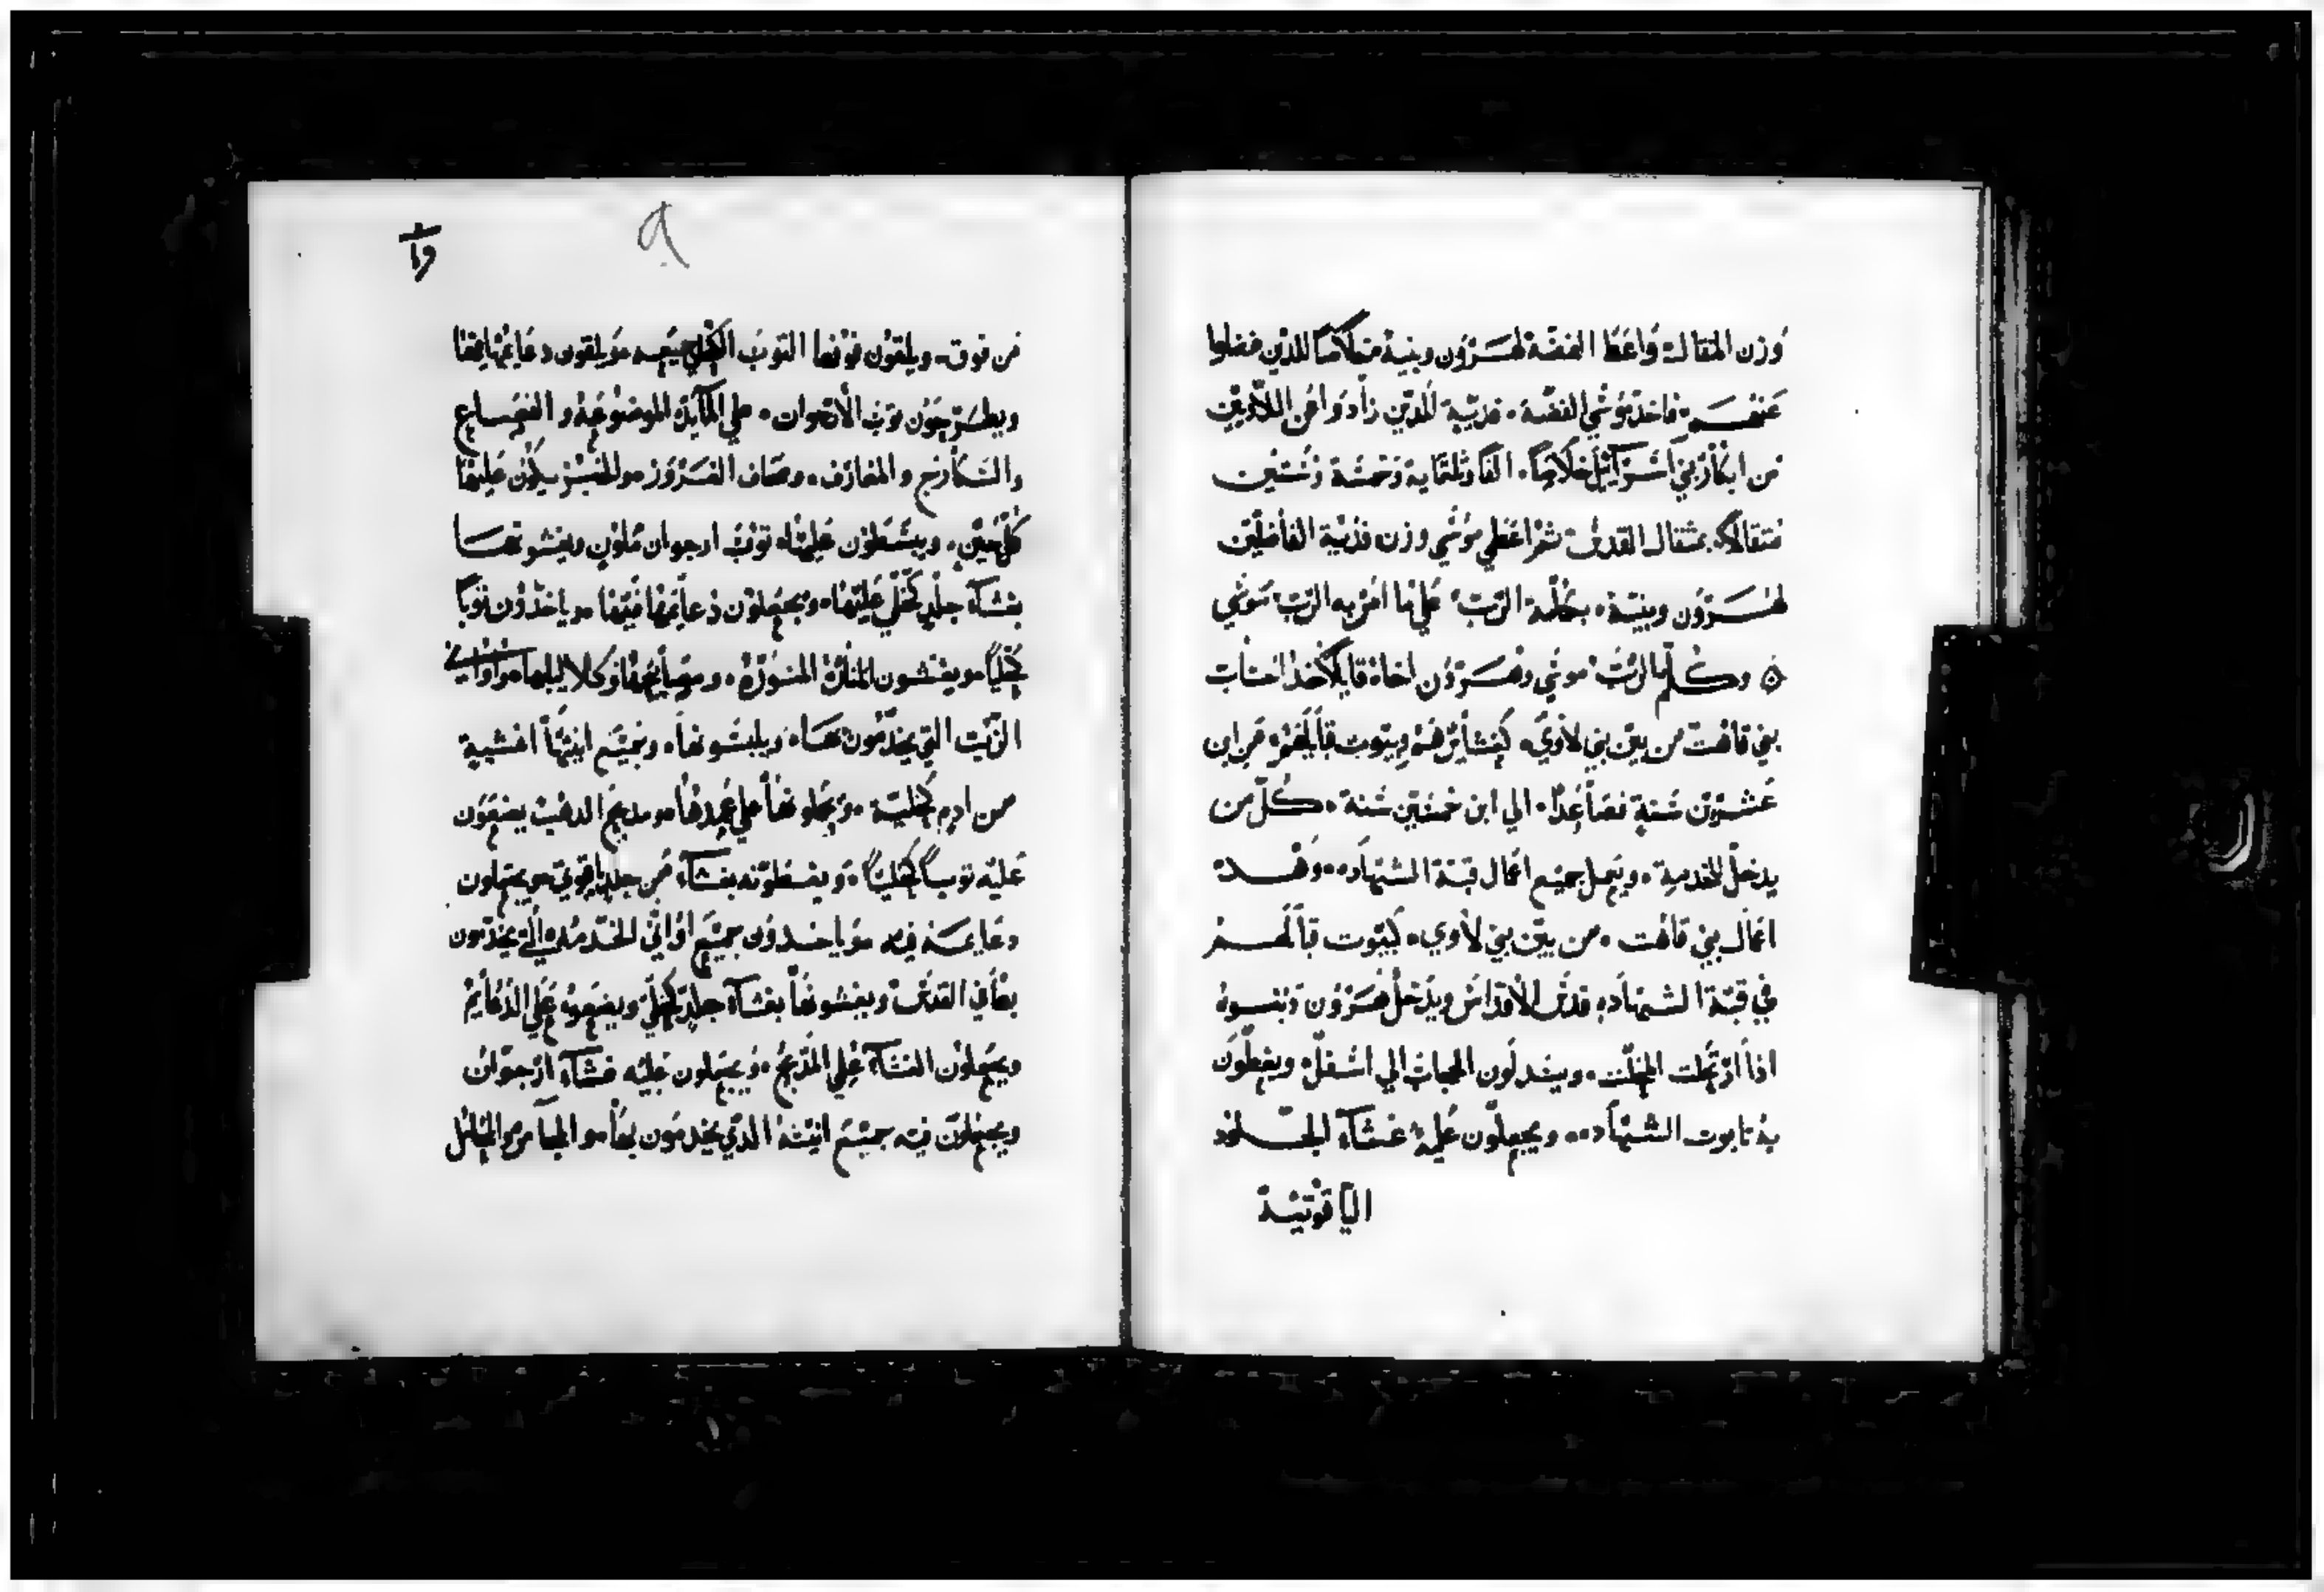 وزن المقالة واعطا الفضة لهرون وبنية خلاصا للدين فضلوا
عنهم فاخد موسي الفضة فدية للدين زادوا عن اللاويين
من ابكار بني اسرائيل خلاصا الفا وثلثماية وخمسة وستين
متقالا بمتقال القدس ثم اعطي موسي وزن فدية الفاضلين
لهرون وبنية بكلمة الرب علي ما امر به الرب موسي
وكلم الرب موسي وهرون اخاه قايلا خد احساب
بني قاهت من بين بني لاوي كعشايرهم وبيوت ابايهم من ابن
عشرين سنة فصاعدا الي ابن خمسين سنة كل من
يدخل للخدمة ويعمل جميع اعمال قبة الشهاده وهده
اعمال بني قاهت من بين بني لاوي كبيوت ابالهم
في قبة الشهاده قدس الاقداس ويدخل هرون وبنوه
ادا ارتحلت المحلة ويسدلون الحجاب الي اسفل ويغطون
به تابوت الشهاده ويجعلون عليه غشآء الجلود
الياقوتية
من فوق ويلقون فوقها التوب الكحلي جميعه ويلقون دعايمها فيها
ويطرحون توب الارجوان علي المايدة الموضوعة والقصاع
والسكارج والمغارف وصحاف والخبز يكون عليها
كل حين ويبسطون عليها توب ارجوان ملون ويغشوتها
بغشآء جلد كحلي عليها ويجعلون دعايمها فيها وياخدون توبا
كحليا ويغشون المنارة المنورة ومصابيحها وكلاليبها واواني
الزيت التي يخدمون بها ويلبسونها وجميع انيتها اغشية
من ادم كحلية ويجعلونها علي عمدها ومدبح الدهب يضعون
عليه توبا كحليا ويغطونه بغشآء من جلد ياقوتي ويجعلون
دعايمه فيه وياخدون جميع اواني الخدمة التي يخدمون
بها في القدس ويغشونها بغشآء جلد كحلي ويضعوه علي الدعايم
ويجعلون الغشآء علي المدبح ويجعلون عليه غشآء ارجوان
ويجعلون فيه جميع انيته الدي يخدمون بها والمجامر والمناشل